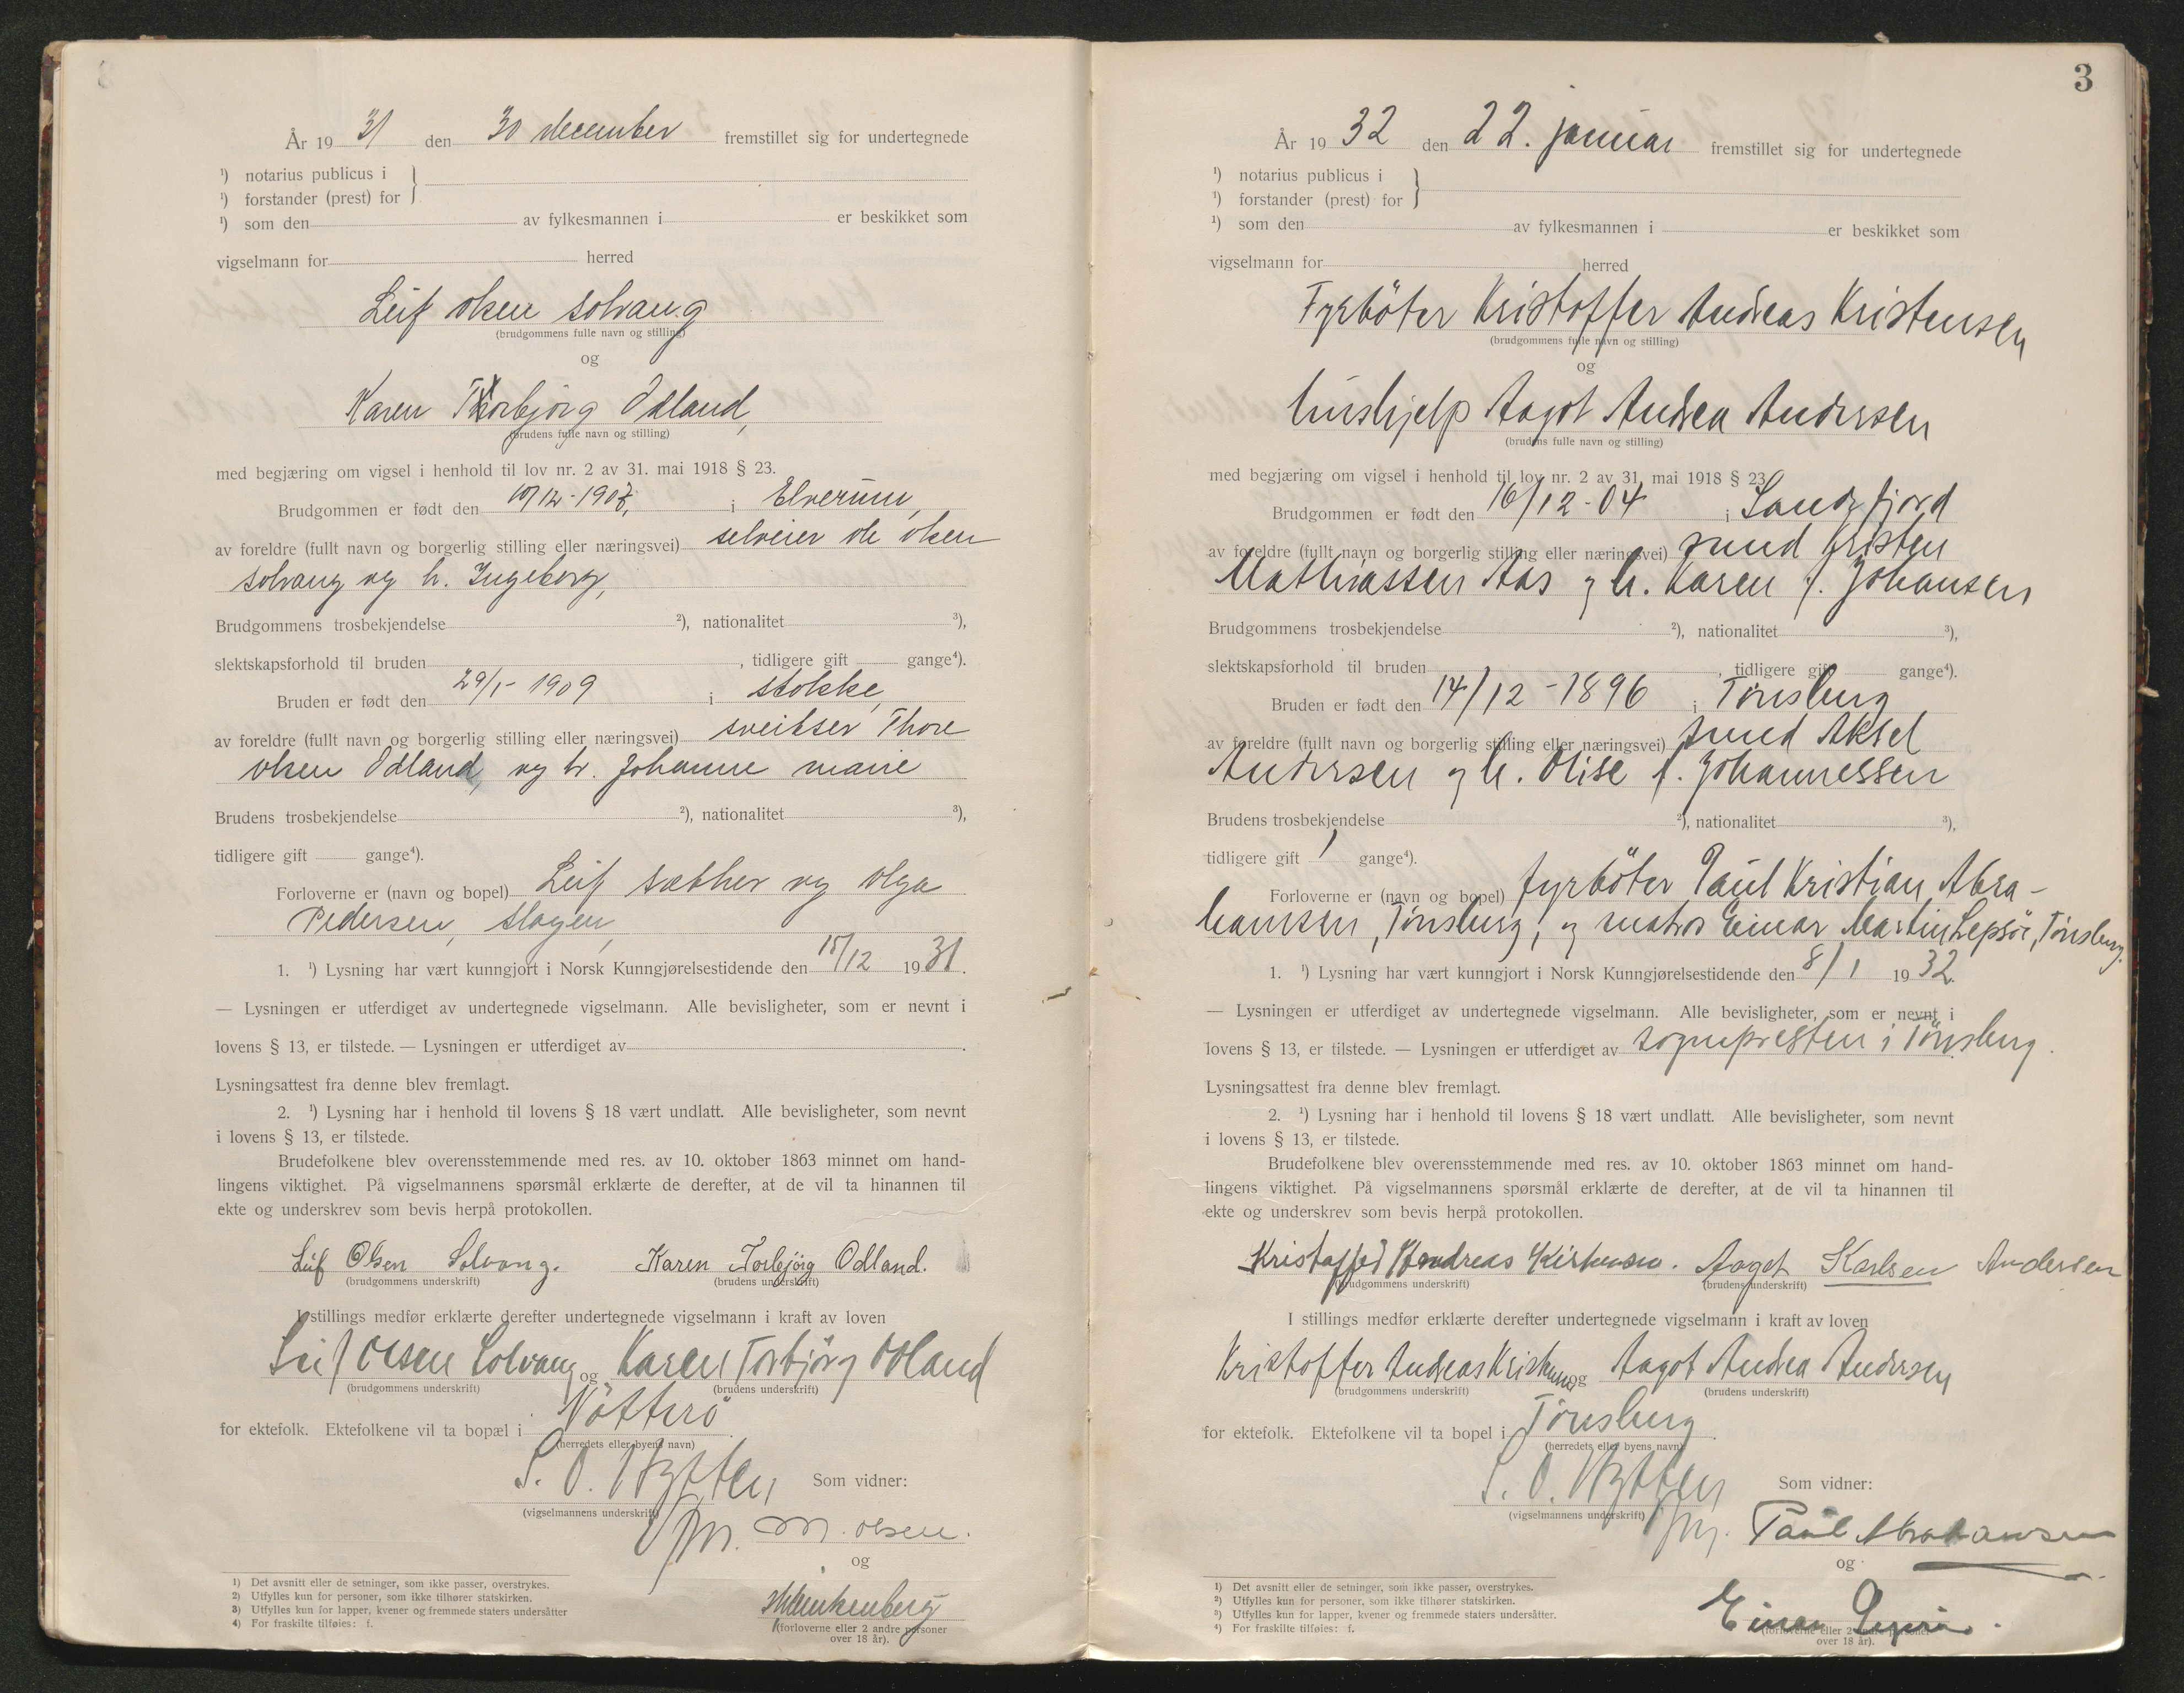 År 1931 den 30 december fremstillet sig for undertegnede
¹) notarius publicus i
¹) forstander (prest) for
¹) som den av fylkesmannen i er beskikket som
vigselmann for herred
Leif Olsen Solvang
(brudgommens fulle navn og stilling)
og
Karen Thorbjörg Odland,
(brudens fulle navn og stilling)
med begjæring om vigsel i henhold til lov nr. 2 av 31. mai 1918 § 23.
Brudgommen er født den 10/12-1907, i Elverum,
av foreldre (fullt navn og borgerlig stilling eller næringsvei) selveier Ole Olsen
Solvang og h. Ingeborg,
Brudgommens trosbekjendelse ²), nationalitet ³),
slektskapsforhold til bruden , tidligere gift gange⁴).
Bruden er født den 29/1-1909 i Stokke,
av foreldre (fullt navn og borgerlig stilling eller næringsvei) sveitser Thore
Olsen Odland, og h. Johanne Marie
Brudens trosbekjendelse ²), nationalitet ³),
tidligere gift gange⁴).
Forloverne er (navn og bopel) Leif Sæther og Olga
Pedersen, Slagen,
1. ¹) Lysning har vært kunngjort i Norsk Kunngjørelsestidende den 15/12 1931.
— Lysningen er utferdiget av undertegnede vigselmann. Alle bevisligheter, som er nevnt i
lovens § 13, er tilstede. — Lysningen er utferdiget av .
Lysningsattest fra denne blev fremlagt.
2. ¹) Lysning har i henhold til lovens § 18 vært undlatt. Alle bevisligheter, som nevnt
i lovens § 13, er tilstede.
Brudefolkene blev overensstemmende med res. av 10. oktober 1863 minnet om hand-
lingens viktighet. På vigselmannens spørsmål erklærte de derefter, at de vil ta hinannen til
ekte og underskrev som bevis herpå protokollen.
Leif Olsen Solvang. Karen Torbjörg Odland.
(brudgommens underskrift) (brudens underskrift)
I stillings medfør erklærte derefter undertegnede vigselmann i kraft av loven
Leif Olsen Solvang og Karen Torbjörg Odland
(brudgommens underskrift) (brudens underskrift)
for ektefolk. Ektefolkene vil ta bopæl i Nötterö.
(herredets eller byens navn)
S. O. Hytten Som vidner:
(vigselmannens underskrift)
fm. M. Olsen.
og
(forloverne eller 2 andre personer
over 18 år).
1) Det avsnitt eller de setninger, som ikke passer, overstrykes.
2) Utfylles kun for personer, som ikke tilhører statskirken.
3) Utfylles kun for lapper, kvener og fremmede staters undersåtter
4) For fraskilte tilføies: f.
3
År 1932 den 22. januar fremstillet sig for undertegnede
¹) notarius publicus i
¹) forstander (prest) for
¹) som den av fylkesmannen i er beskikket som
vigselmann for herred
Fyrböter Kristoffer Andreas Kristensen
(brudgommens fulle navn og stilling)
og
hushjelp Aagot Andrea Andersen
(brudens fulle navn og stilling)
med begjæring om vigsel i henhold til lov nr. 2 av 31. mai 1918 § 23.
Brudgommen er født den 16/12-04 i Sandefjord
av foreldre (fullt navn og borgerlig stilling eller næringsvei) smed Kristen
Mathiassen Aas og h. Karen f. Johansen
Brudgommens trosbekjendelse ²), nationalitet ³),
slektskapsforhold til bruden , tidligere gift gange⁴).
Bruden er født den 14/12-1896 i Tønsberg
av foreldre (fullt navn og borgerlig stilling eller næringsvei) smed Aksel
Andersen og h. Olise f. Johannessen
Brudens trosbekjendelse ²), nationalitet ³),
tidligere gift 1 gange⁴).
Forloverne er (navn og bopel) fyrböter Paul Kristian Abra-
hamsen, Tønsberg, og matros Einar Martin Lepsöe, Tønsberg.
1. ¹) Lysning har vært kunngjort i Norsk Kunngjørelsestidende den 8/1 1932.
— Lysningen er utferdiget av undertegnede vigselmann. Alle bevisligheter, som er nevnt i
lovens § 13, er tilstede. — Lysningen er utferdiget av sognepresten i Tønsberg.
Lysningsattest fra denne blev fremlagt.
2. ¹) Lysning har i henhold til lovens § 18 vært undlatt. Alle bevisligheter, som nevnt
i lovens § 13, er tilstede.
Brudefolkene blev overensstemmende med res. av 10. oktober 1863 minnet om hand-
lingens viktighet. På vigselmannens spørsmål erklærte de derefter, at de vil ta hinannen til
ekte og underskrev som bevis herpå protokollen.
Kristoffer Andreas Kristensen. Aagot Karlsen Andersen
(brudgommens underskrift) (brudens underskrift)
I stillings medfør erklærte derefter undertegnede vigselmann i kraft av loven
Kristoffer Andreas Kristensen og Aagot Andrea Andersen
(brudgommens underskrift) (brudens underskrift)
for ektefolk. Ektefolkene vil ta bopel i Tønsberg.
(herredets eller byens navn)
S. O. Hytten Som vidner:
(vigselmannens underskrift)
fm. Paul Abrahamsen
og
Einar Lepsöe.
(forloverne eller 2 andre personer
over 18 år).
1) Det avsnitt eller de setninger, som ikke passer, overstrykes.
2) Utfylles kun for personer, som ikke tilhører statskirken.
3) Utfylles kun for lapper, kvener og fremmede staters undersåtter.
4) For fraskilte tilføies: f.